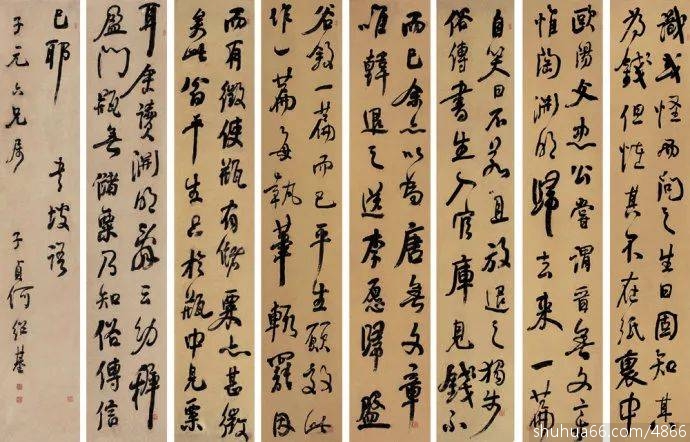 識或怪而問之生曰固知其
為錢但怪其不在紙裹中
歐陽文忠公嘗謂晉無文章
惟陶淵明歸去來一篇
自笑曰不若且放退之獨步
俗傳書生入官庫見錢不
而已余亦以為唐無文章
唯韓退之送李愿歸盤
谷敘一篇而已平生願效此
作一篇每執筆輒罷因
而有徵使瓶有儲粟亦甚微
矣此翁平生只於瓶中見粟
耳讀淵明辭云幼稚
盈門瓶無儲粟乃知俗傳信
已耶 東坡語
子元六兄屬 子貞何紹基
shuhua66.com/4866